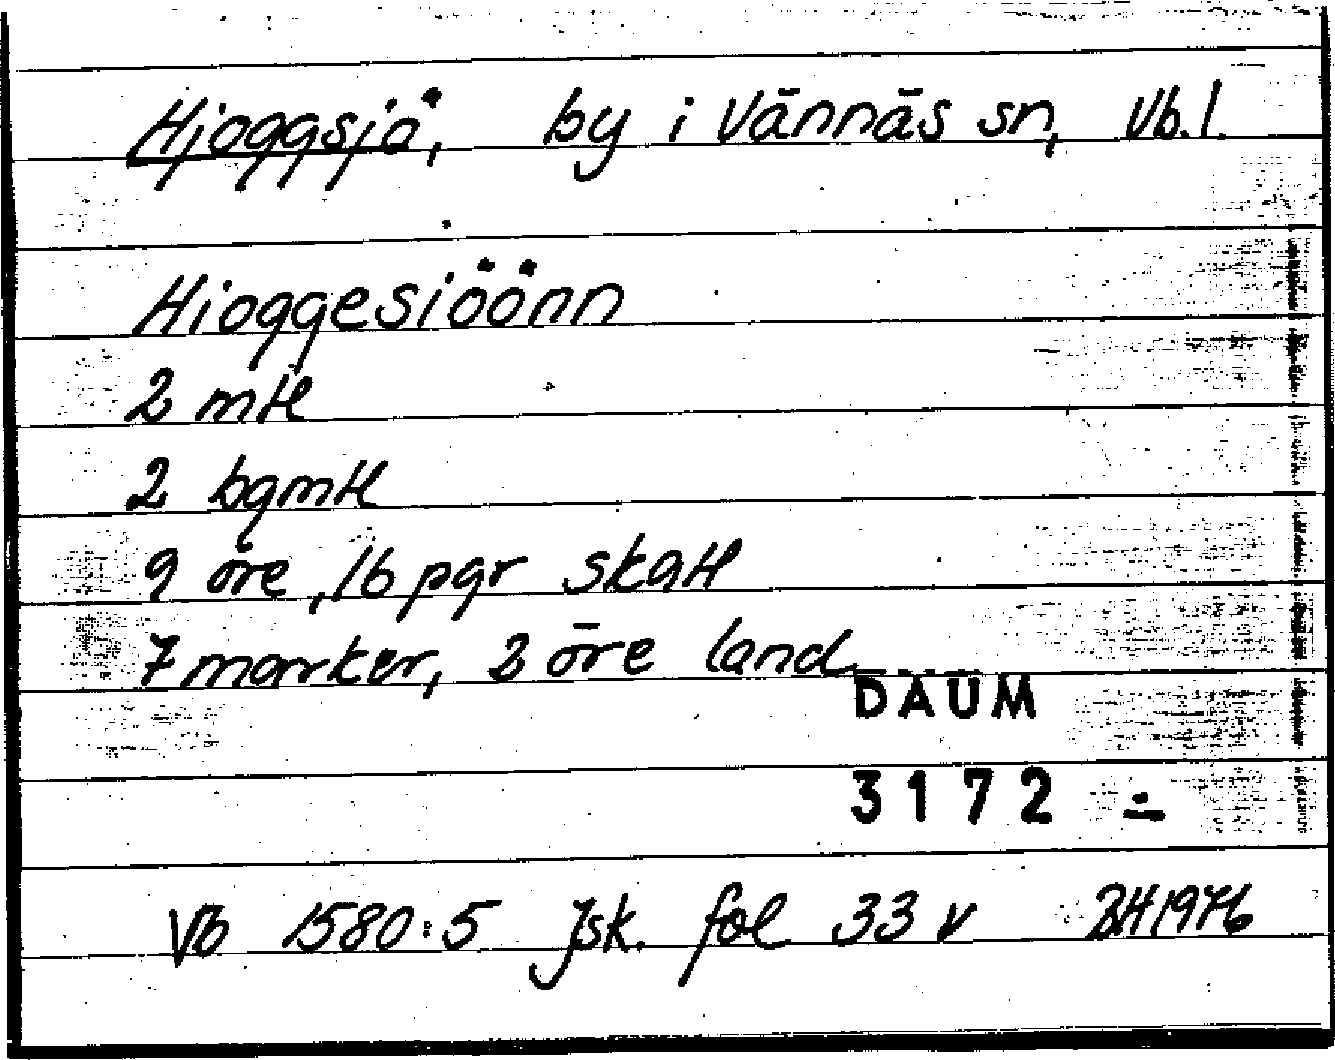 Hjoggsjö, by i Vännäs sn, Vb. l.
Hioggesiöönn
2 mtl
2 bgmtl
9 öre, 16 pgr skatt
7 marker, 2 öre land
DAUM
3172 -
Vb 1580:5 Jsk. fol 33 v BH 1976